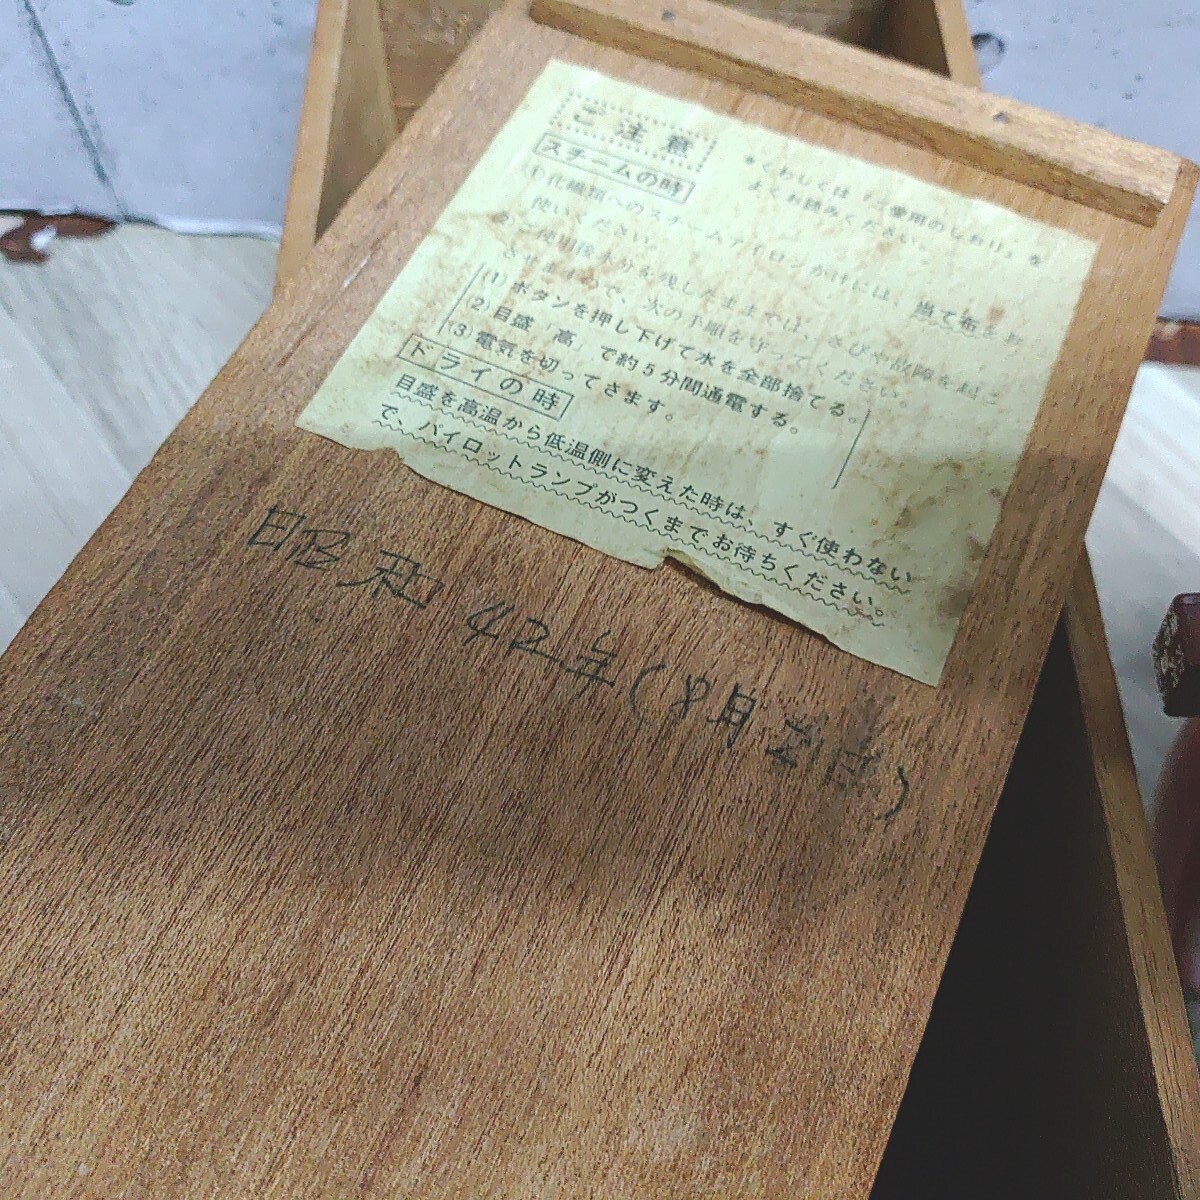 ご注意
*くわしくは「ご愛用のしおり」を
よくお読みください。
スチームの時
①化繊類へのスチームアイロンがけには、当て布をお
使いください。
②ご使用後水分を残したままでは、さびや故障を起こ
させますので、次の手順を守ってください。
(1) ボタンを押し下げて水を全部捨てる。
(2) 目盛「高」で約5分間通電する。
(3) 電気を切ってさます。
ドライの時
目盛を高温から低温側に変えた時は、すぐ使わない
で、パイロットランプがつくまでお待ちください。
昭和42年(8月